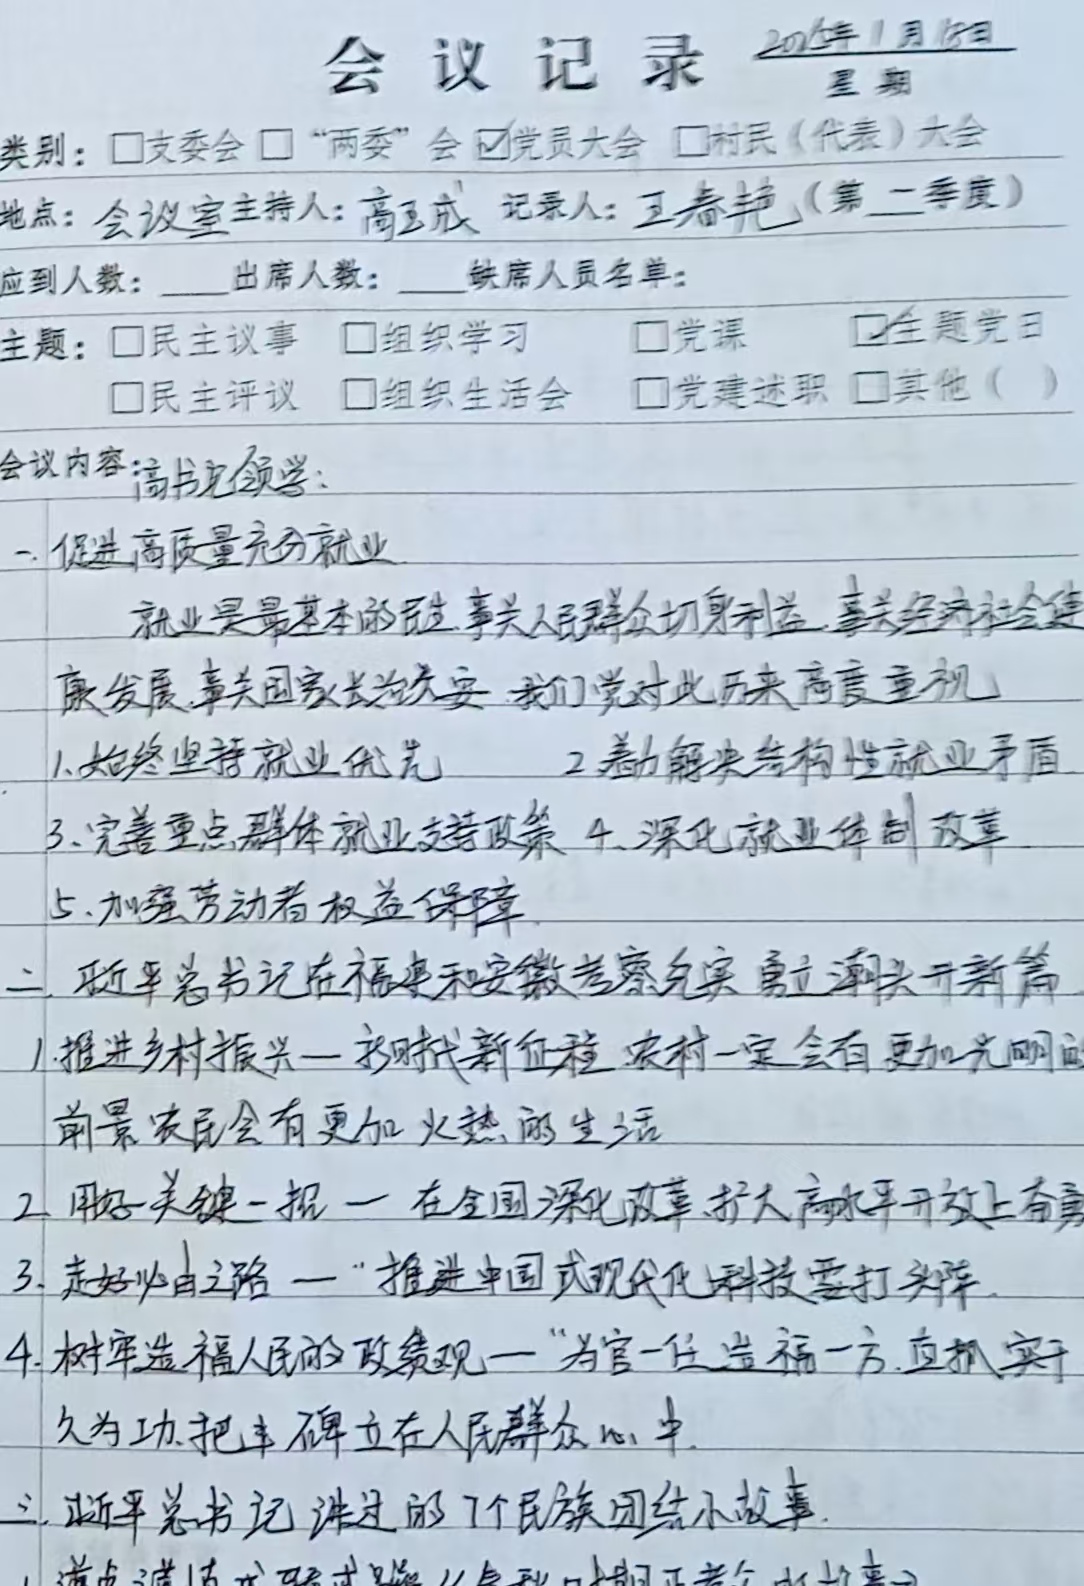 会议记录
2025年1月15日
星期
类别：□支委会 □“两委”会 ☑党员大会 □村民（代表）大会
地点：会议室 主持人：高玉成 记录人：王春艳（第__季度）
应到人数：____出席人数：____缺席人员名单：
主题：□民主议事 □组织学习 □党课 ☑主题党日
□民主评议 □组织生活会 □党建述职 □其他（ ）
会议内容：高书记领学：
一. 促进高质量充分就业
就业是最基本的民生.事关人民群众切身利益.事关经济社会健
康发展.事关国家长治久安 我们党对此历来高度重视
1.始终坚持就业优先 2.着力解决结构性就业矛盾
3.完善重点群体就业支持政策 4.深化就业体制改革
5.加强劳动者权益保障.
二. 习近平总书记在福建和安徽考察纪实 勇立潮头开新篇
1.推进乡村振兴一 新时代新征程 农村一定会有更加光明的
前景 农民会有更加火热的生活
2.用好关键一招 一 在全国深化改革.扩大高水平开放上奋勇
3.走好必由之路 一 “推进中国式现代化科技要打头阵.
4.树牢造福人民的政绩观一 “为官一任造福一方.真抓实干
久为功.把丰碑立在人民群众心中.
三. 习近平总书记讲过的7个民族团结小故事.